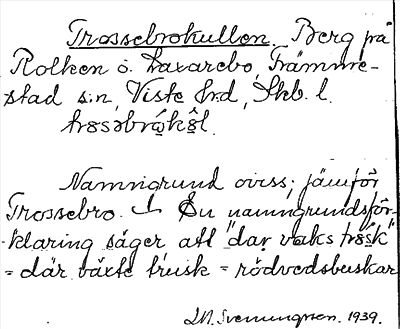 Trossebrokullen. Berg på
Rolken o. Laxarebo, Främme-
stad s:n, Viste hrd, Skb. l.
Namngrund oviss; jämför
Trossebro. En namngrundsför-
klaring säger att "dar vaks trøsk"
= där växte trusk = rödvedsbuskar
Svenungsson. 1939.